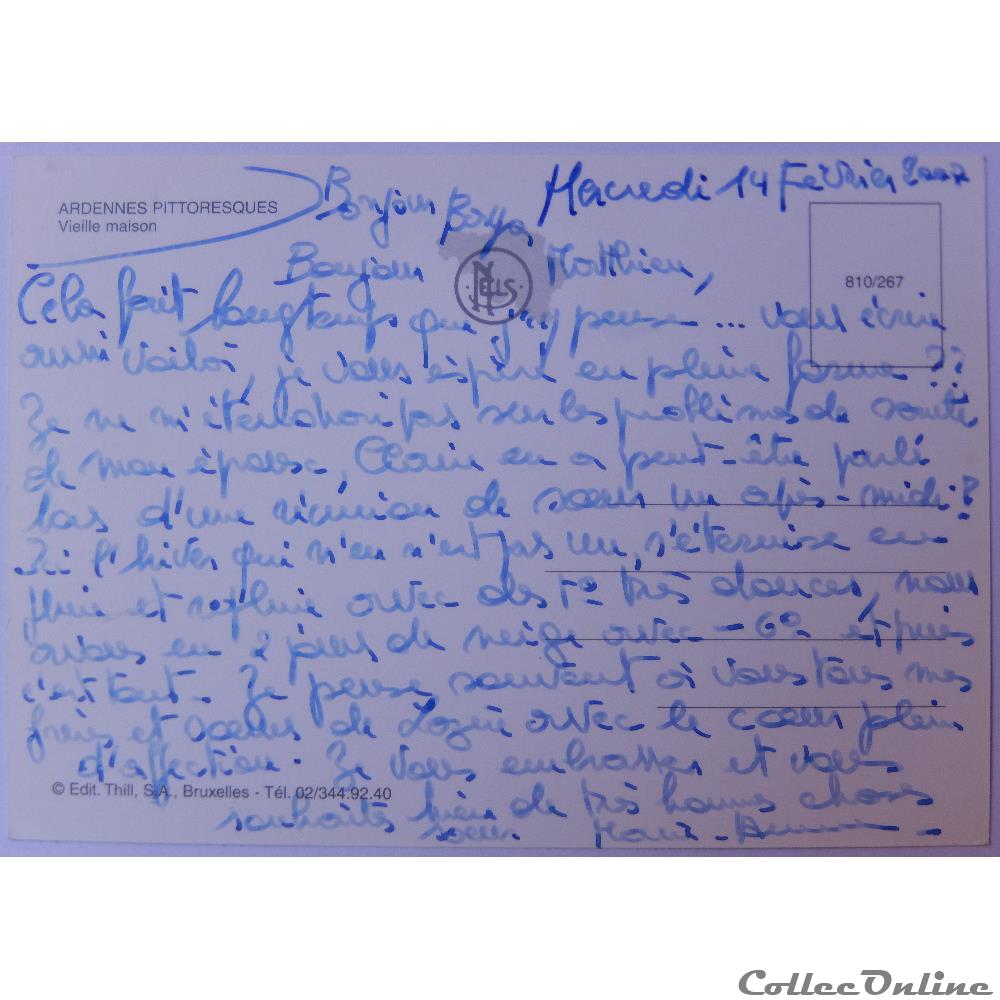 Mercredi 14 Février 2007
ARDENNES PITTORESQUES
Vieille maison
Bonjour
Bonjour Matthieu,
NELS
810/267
Cela fait longtemps que j'y pense... vous écrire
aussi voilà, je vous espère en pleine forme ??
Je ne m'étendrai pas sur les problèmes de santé
de mon épouse, en a peut-être parlé
lors d'une réunion de soeurs un après-midi ?
Ici l'hiver qui n'en n'est pas un, s'éternise en
pluie et repluie avec des T° très douces, nous
avons eu 2 jours de neige avec - 6° et puis
c'est tout. Je pense souvent à vous tous mes
frères et soeurs de avec le coeur plein
d'affection. Je vous embrasse et vous
© Edit. Thill, S.A., Bruxelles - Tél. 02/344.92.40
souhaite bien de très bonnes choses
CollecOnline